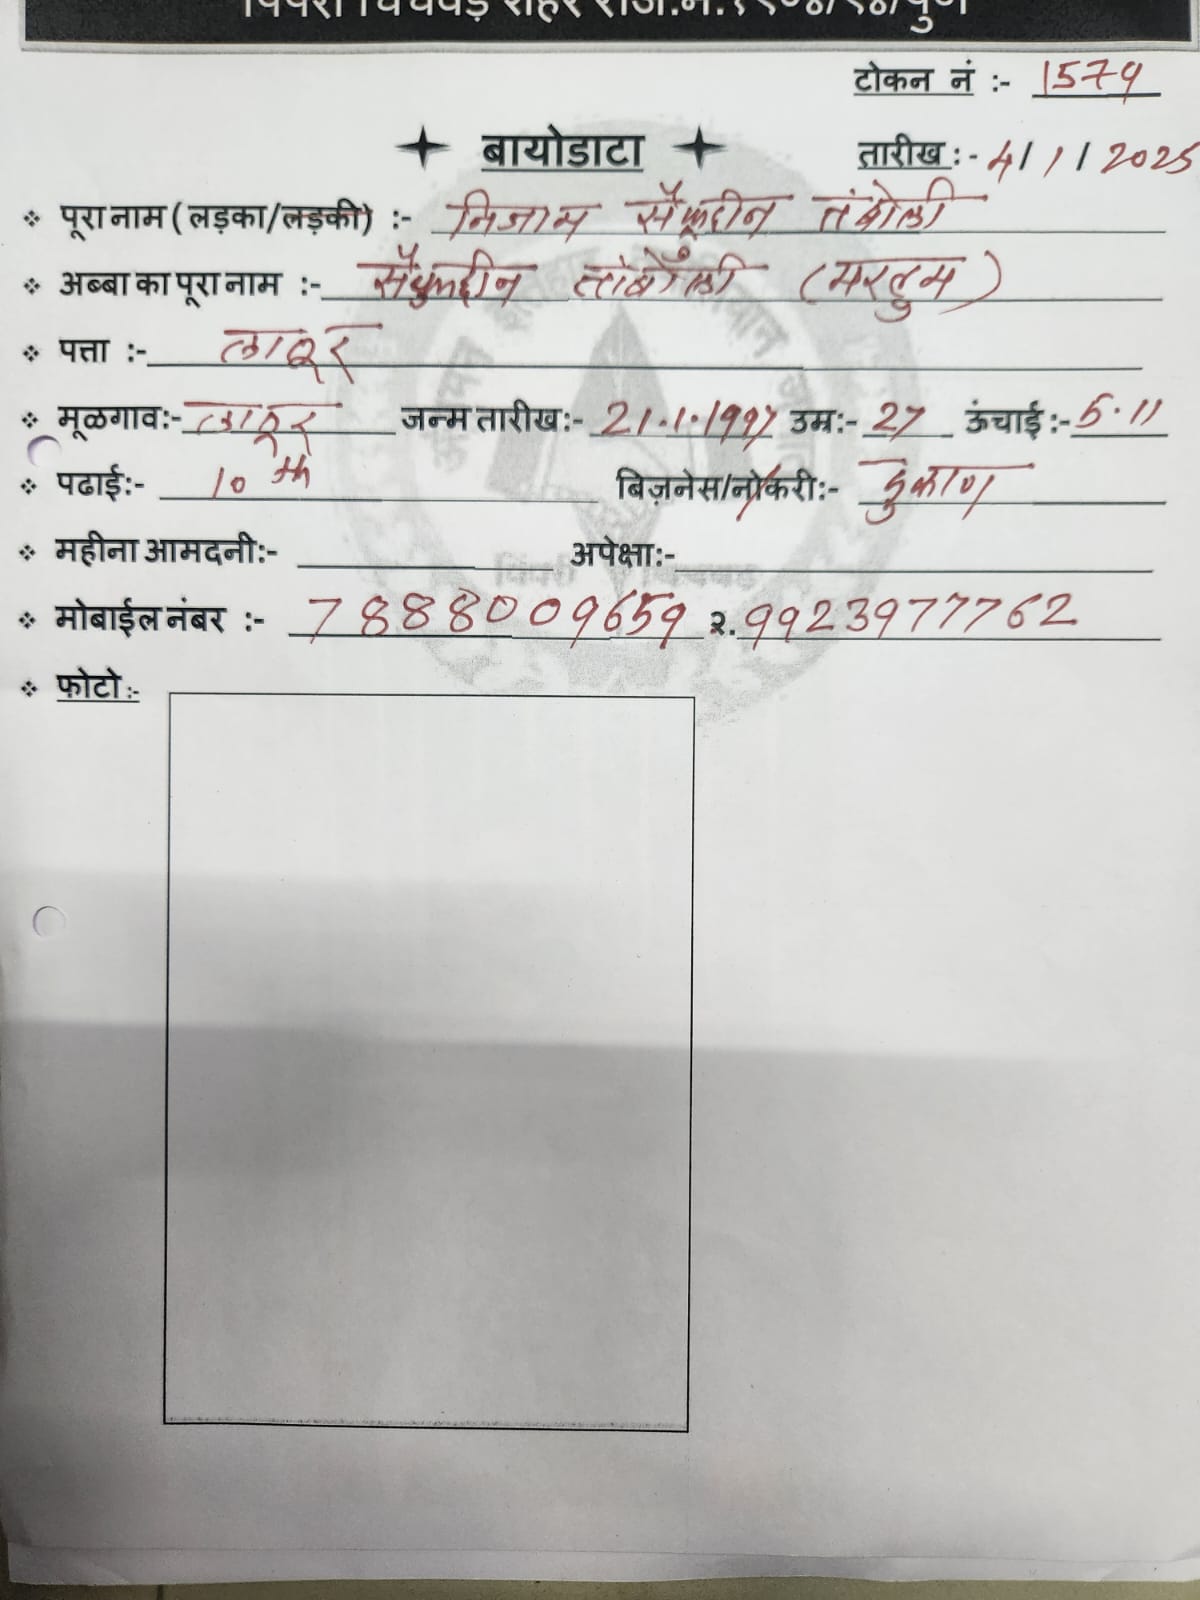 पिंपरी चिंचवड शहर रजि.नं.१९०४/९४/पुणे
टोकन नं :- 1579
बायोडाटा
तारीख :- 4/1/2025
पूरा नाम ( लड़का/लड़की) :- निजाम सैफूद्दीन तंबोली
अब्बा का पूरा नाम :- सैफुद्दीन तांबोळी (मरहुम)
पत्ता :- लातूर
मूळगाव:- लातूर जन्म तारीख:- 21.1.1997 उम्र:- 27 ऊंचाई :- 5.11
पढाई:- 10th बिज़नेस/नोकरी:- दुकाण
महीना आमदनी:- अपेक्षा:-
मोबाईल नंबर :- 7888009659 २. 9923977762
फोटो:-
पिंपरी चिंचवड